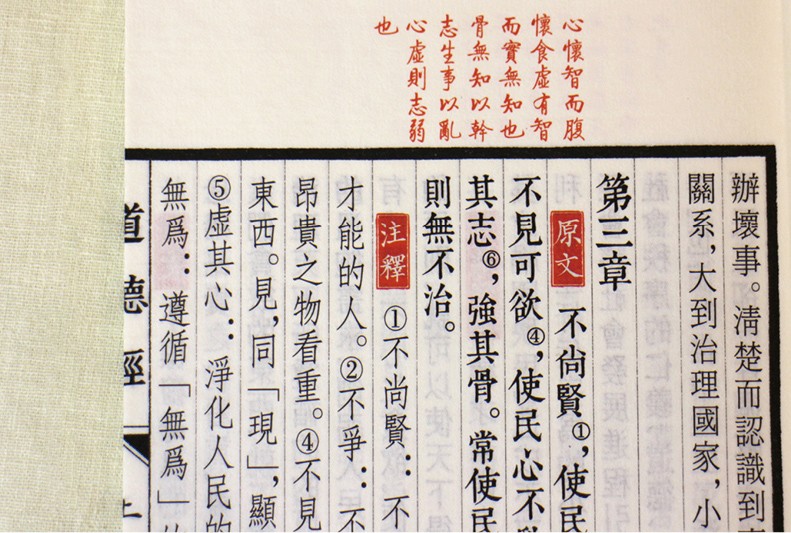 心懷智而腹
懷食虛有智
而實無知也
骨無知以幹
志生事以亂
心虛則志弱
也
辦壞事。清楚而認識到
關系，大到治理國家，小
第三章
原文 不尚賢①，使民
不見可欲④，使民心不
其志⑥，強其骨。常使民
則無不治。
注釋 ①不尚賢：不
才能的人。②不爭：不
昂貴之物看重。④不見
東西。見，同「現」，顯
⑤虛其心：淨化人民的
無爲：遵循「無爲」
道德經